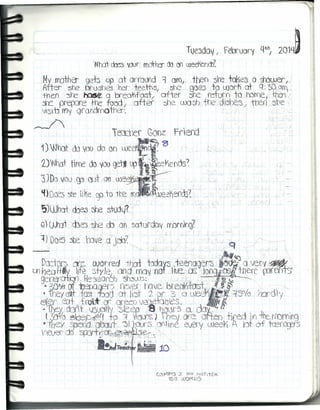 Tuesday, February 9th, 2014
What does your mother do on weekends?
My mother gets up at arround 7 am, then she takes a shower,
After she brushes her teeths, she goes to work at 9:30 am,
then she have a breakfast, after she return to home, then
she prepare the food, after she wash the dishes, then she
visits my grandmother.
Teacher Gonz Friend
1) What do you do on weekends? 8
2) What time do you get up weekends?
3) Do you go out on weekends
4) Does she like go to the weekends?
5) What does she study?
6) What does she do on saturday morning?
7) Does she have a job?
9
Doctors are worried that todays teenagers a very
unhealthy life style, and may not live as long as there parents'
generation. Research shows:
• 30% of teenagers never have breakfast.
• They eat fast food at list 2 or 3 a week 75% hardly
ever eat fruit or green vegetables.
• They don't usually sleep 8 hours a day
to 7 hours) They are often tired in the morning
• They spend about 31 hours online every week. A lot of teenagers
never do sport or exercise.
Teacher 10